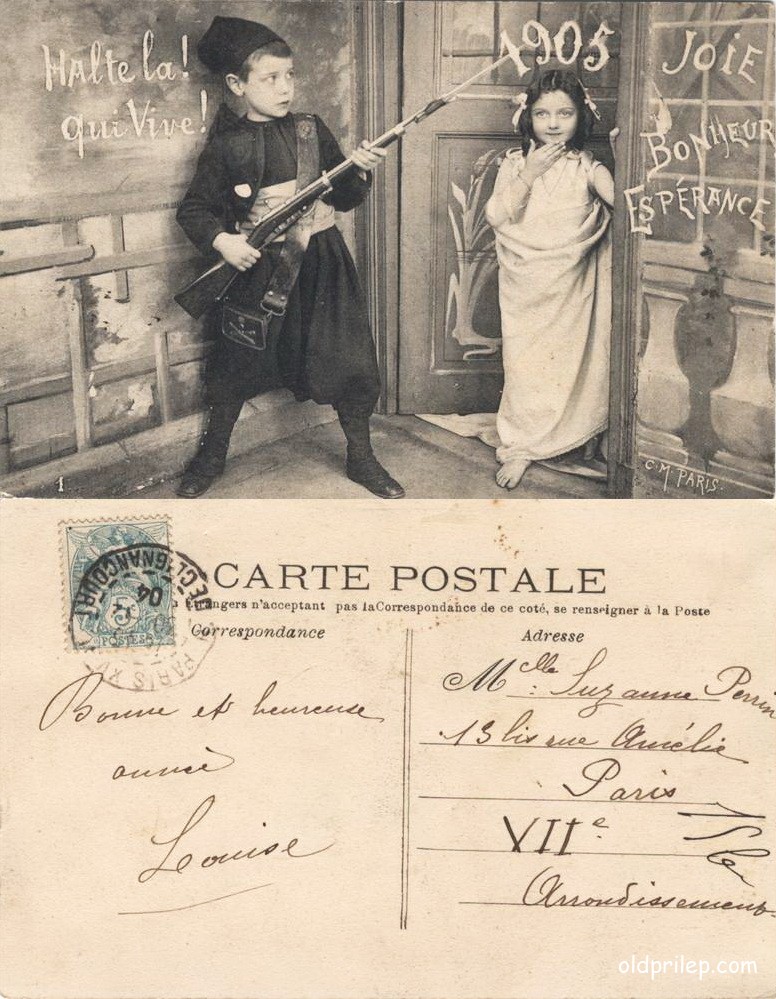 Halte la!
qui Vive!
1905
JOIE
BONHEUR
ESPÉRANCE
1.
C.M. PARIS.
CARTE POSTALE
étrangers n'acceptant pas la Correspondance de ce coté, se renseigner à la Poste
Correspondance
Adresse
5
POSTES
04
DE CLIGNANCOURT
PARIS XV
Bonne et heureuse
année
Louise
Melle: Suzanne Perrin
13 bis rue Amélie
Paris
VIIe
Arrondissement
oldprilep.com